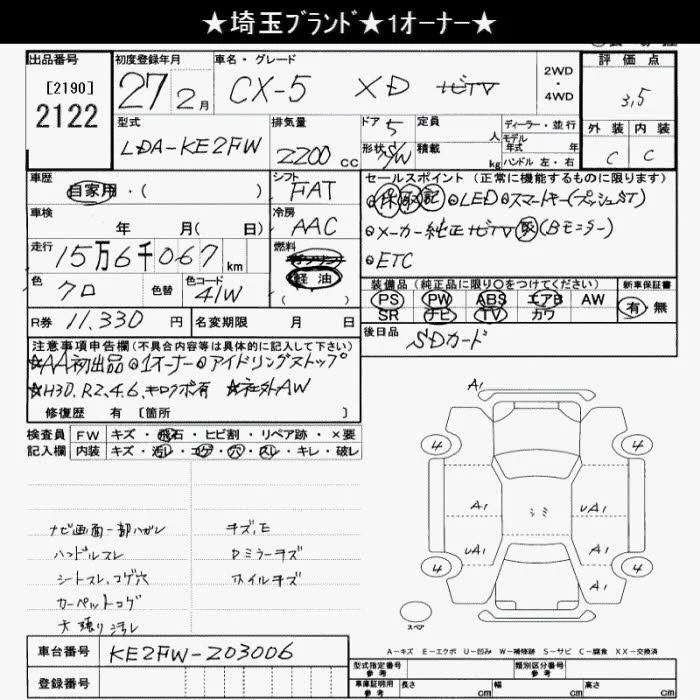 ★埼玉ブランド★1オーナー★
出品番号
[2190]
2122
初度登録年月
27 2月
車名・グレード
CX-5 XD ナビTV
2WD
・
4WD
評価点
3,5
外装 内装
C C
型式
LDA-KE2FW
排気量
2200 cc
ドア 5
形状 5/W
定員 人
積載 kg
ディーラー・並行
モデル
年式 年
ハンドル 左・右
車歴
自家用・( )
シフト
FAT
車検
年 月( 日)
冷房
AAC
走行
15万6千067 km
燃料
ガソリン
軽油
色
クロ
色替
色コード
41W
R券 11,330 円
名変期限 月 日
セールスポイント(正常に機能するものに限ります)
⊙保取記⊙LED⊙スマートキー(プッシュST)
⊙メーカー純正ナビTV取(Bモニター)
⊙ETC
装備品(純正品に限り○をつけてください)
PS PW ABS エアB AW
SR ナビ TV カワ
新車保証書
有・無
後日品
SDカード
注意事項申告欄(不具合内容等は具体的に記入して下さい)
☆AA初出品⊙1オーナー⊙アイドリングストップ
☆H30、R2、4、6、キロクボ有 ☆社外AW
修復歴 有 [箇所 ]
検査員 FW キズ・飛石・ヒビ割・リペア跡・×要
記入欄 内装 キズ・汚レ・コゲ・穴・スレ・キレ・破レ
ナビ画面一部ハガレ
ハンドルスレ
シートスレ、コゲ穴
カーペットコゲ
天張り汚レ
キズ、E
Dミラーキズ
ホイルキズ
A1
4 4
A1 シミ UA1
UA1 A1
4 4
A1
スペア
A-キズ E-エクボ U-凹み W-補修跡 S-サビ C-腐食 XX-交換済
車台番号 KE2FW-203006
登録番号
型式指定番号
参考
類別区分番号
参考
車庫証明用
参考
長さ cm 幅 cm 高さ cm